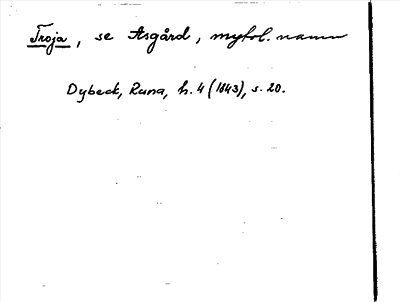 Troja, se Asgård, mytol. namn
Dybeck, Runa, h. 4 (1843), s. 20.